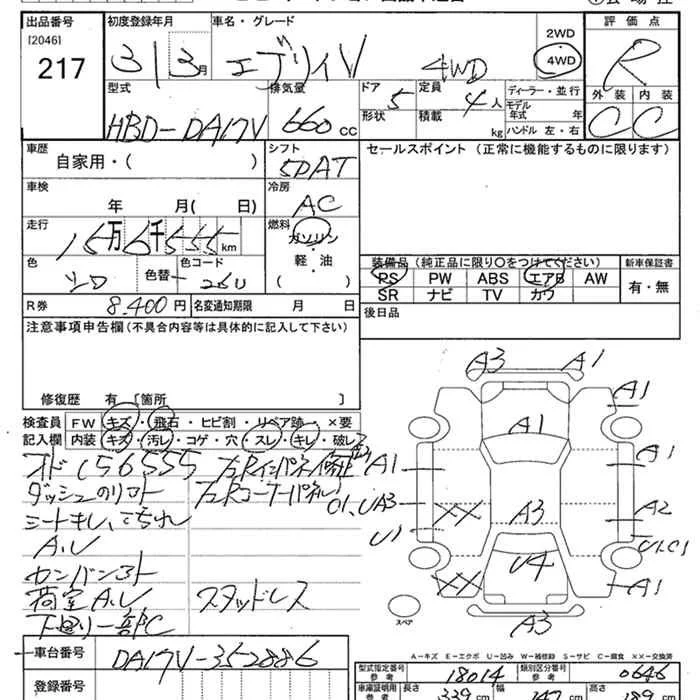 出品番号 初度登録年月 車名・グレード 評価点
[2046]
217
31 3月 エブリイV 4WD 2WD 4WD R
型式 排気量 ドア 5 定員 4人 ディーラー・並行 外装 内装
HBD-DA17V 660 CC 形状 積載 kg モデル年式 年 ハンドル 左・右 C C
車歴 シフト セールスポイント (正常に機能するものに限ります)
自家用・( ) 5DAT
車検 冷房
年 月( 日) AC
走行 燃料
15万6千555km ガソリン・軽・油 ( )
色 色替 色コード 装備品 (純正品に限り○をつけてください) 新車保証書
26U PS PW ABS エアB AW 有・無
SR ナビ TV カワ
R券 8,400円 名変通知期限 月 日 後日品
注意事項申告欄 (不具合内容等は具体的に記入して下さい)
修復歴 有 [箇所 ]
検査員記入欄 FW キズ・飛石・ヒビ割・リペア跡・×要
内装 キズ・汚レ・コゲ・穴・スレ・キレ・破レ
A3 A1
A1
A1
オド156555 左Rインパネ修正 A1 A1
ダッシュのリコト 左Rコーナーパネル U1,UA3 XX A3 A2
シートキレ、こちれ U1 U1,C1
A,U
カンバンコト XX U4 A1
荷室A,U スタッドレス
下廻リ一部C スペア A3
A-キズ E-エクボ U-凹み W-補修跡 S-サビ C-腐食 XX-交換済
車台番号 DA17V-352886 型式指定番号 参考 18014 類別区分番号 参考 0646
登録番号 車庫証明用 参考 長さ 339cm 幅 147cm 高さ 189cm